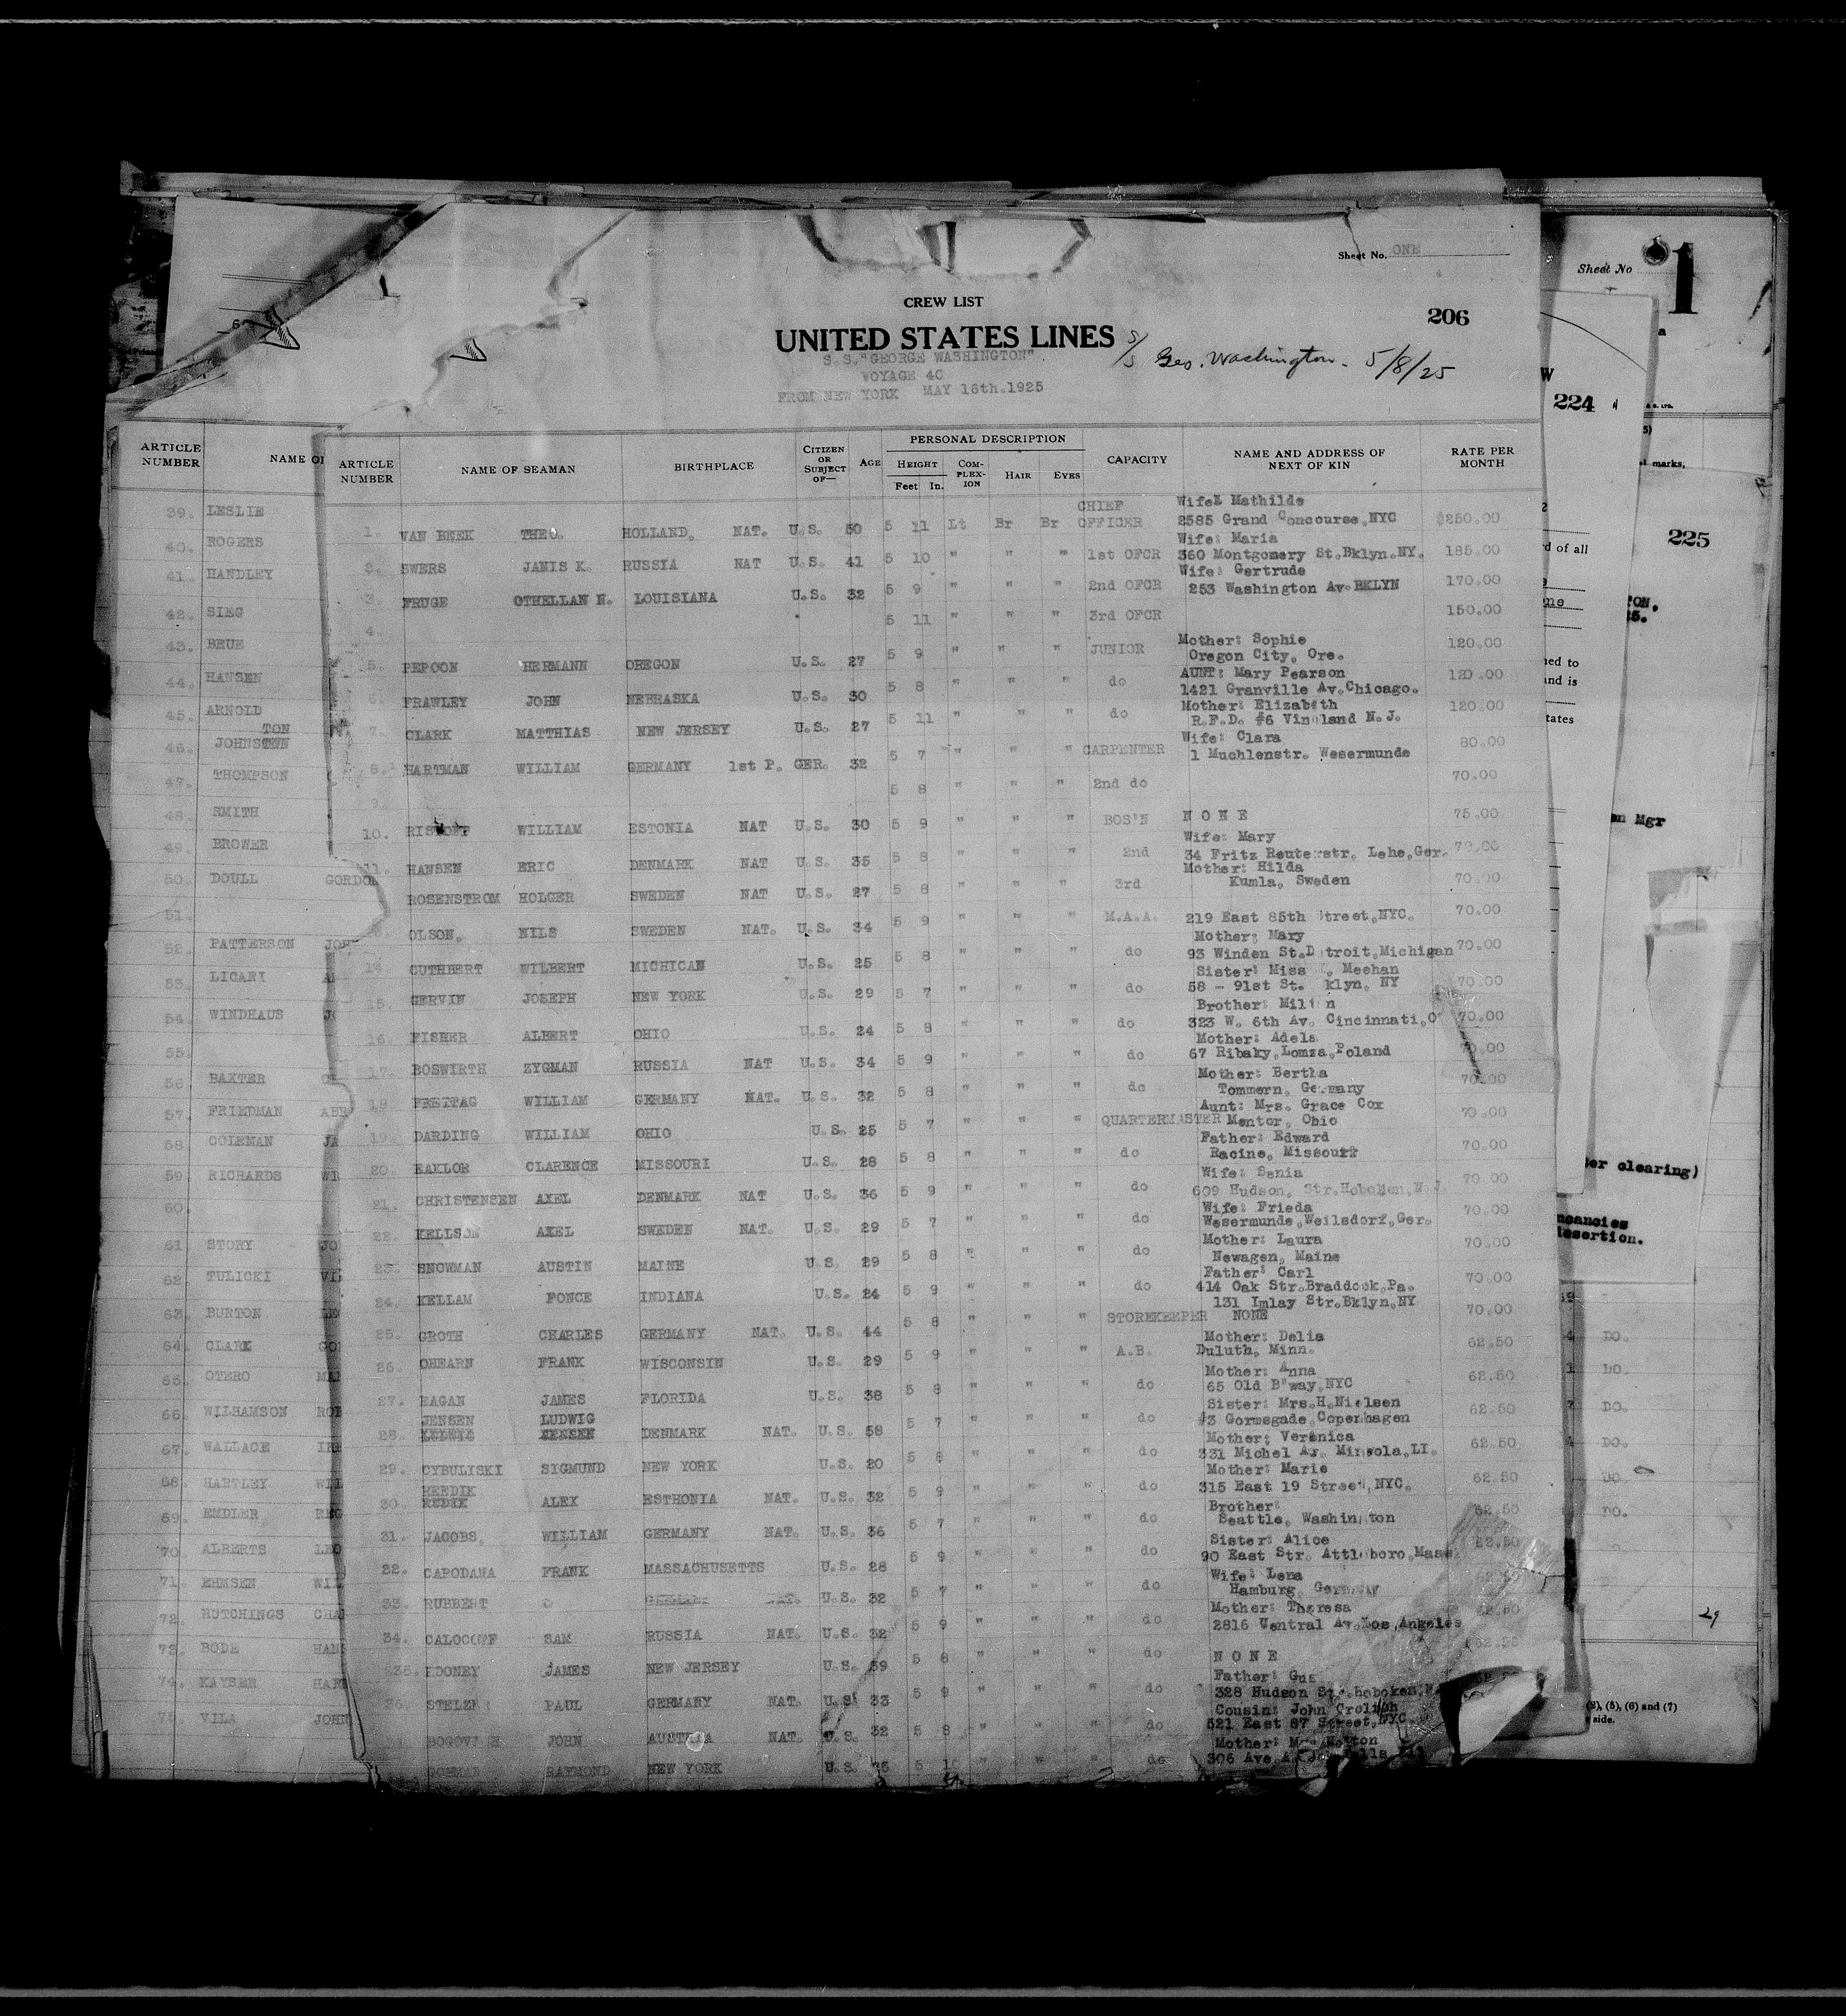 Sheet No. ONE
CREW LIST
206
UNITED STATES LINES S/S Geo. Washington - 5/8/25
S.S."GEORGE WASHINGTON"
VOYAGE 40
FROM NEW YORK MAY 16th.1925
ARTICLE NUMBER NAME OF SEAMAN BIRTHPLACE CITIZEN OR SUBJECT OF— AGE PERSONAL DESCRIPTION HEIGHT Feet In. COMPLEXION HAIR EYES CAPACITY NAME AND ADDRESS OF NEXT OF KIN RATE PER MONTH
1. VAN BEEK THEO. HOLLAND. NAT. U.S. 50 5 11 Lt Br Br CHIEF OFFICER Wife: Mathilde 2585 Grand Concourse,NYC $250.00
2. SWERS JANIS K. RUSSIA NAT U.S. 41 5 10 " " " 1st OFCR Wife: Maria 360 Montgomery St.Bklyn.NY. 185.00
3. FRUGE OTHELLAN N. LOUISIANA U.S. 32 5 9 " " " 2nd OFCR Wife: Gertrude 253 Washington Av.BKLYN 170.00
4. 5 11 " " " 3rd OFCR 150.00
5. PEPOON HERMANN OREGON U.S. 27 5 9 " " " JUNIOR Mother: Sophie Oregon City, Ore. 120.00
6. FRAWLEY JOHN NEBRASKA U.S. 30 5 8 " " " do AUNT: Mary Pearson 1421 Granville Av.Chicago. 120.00
7. CLARK MATTHIAS NEW JERSEY U.S. 27 5 11 " " " do Mother: Elizabeth R.F.D. #6 Vin land N.J. 120.00
8. HARTMAN WILLIAM GERMANY 1st P. GER. 32 5 7 " " " CARPENTER Wife: Clara 1 Muchlenstr. Wesermunde 80.00
9. 5 8 " " " 2nd do 70.00
10. WILLIAM ESTONIA NAT U.S. 30 5 9 " " " BOS'N N O N E 75.00
11. HANSEN ERIC DENMARK NAT U.S. 35 5 8 " " " 2nd Wife: Mary 34 Fritz Reuterstr. Lehe,Ger. 70.00
ROSENSTROM HOLGER SWEDEN NAT U.S. 27 5 8 " " " 3rd Mother: Hilda Kumla, Sweden 70.00
OLSON, NILS SWEDEN NAT. U.S. 34 5 9 " " " M.A.A. 219 East 85th treet,NYC. 70.00
14. CUTHBERT WILBERT MICHICAN U.S. 25 5 8 " " " do Mother: Mary 93 Winden St.D troit,Michigan 70.00
15. GERVIN JOSEPH NEW YORK U.S. 29 5 7 " " " do Sister: Miss Meehan 58 - 91st St. klyn, NY 70.00
16. FISHER ALBERT OHIO U.S. 24 5 8 " " " do Brother: Mil n 323 W. 6th Av. Cincinnati,O 70.00
17. BOSWIRTH ZYGMAN RUSSIA NAT U.S. 34 5 9 " " " do Mother: Adela 67 Ribaky,Lomza,Poland 70.00
18. FREITAG WILLIAM GERMANY NAT. U.S. 32 5 8 " " " do Mother: Bertha Tommern, Germany 70.00
19. DARDING WILLIAM OHIO U.S. 25 5 7 " " " QUARTERMASTER Aunt: Mrs. Grace Cox Mentor, Ohio 70.00
20. BAXLOR CLARENCE MISSOURI U.S. 28 5 8 " " " do Father: Edward Racine, Missouri 70.00
21. CHRISTENSEN AXEL DENMARK NAT U.S. 36 5 9 " " " do Wife: Senia 609 Hudson. Str.Hoboken,N.J. 70.00
22. KELLSON AXEL SWEDEN NAT. U.S. 29 5 7 " " " do Wife: Frieda Wesermunde,Weilsdorf,Ger. 70.00
23. SNOWMAN AUSTIN MAINE U.S. 29 5 8 " " " do Mother: Laura Newagen, Maine 70.00
24. KELLAM PONCE INDIANA U.S. 24 5 9 " " " do Father: Carl 414 Oak Str.Braddock,Pa. 70.00
25. GROTH CHARLES GERMANY NAT. U.S. 44 5 8 " " " STOREKEEPER 131 Imlay Str.Bklyn,NY NONE 70.00
26. OHEARN FRANK WISCONSIN U.S. 29 5 9 " " " A.B. Mother: Delia Duluth, Minn. 62.50
27. EAGAN JAMES FLORIDA U.S. 38 5 8 " " " do Mother: Anna 65 Old B'way,NYC 62.50
28. JENSEN LUDWIG LUDWIG JENSEN DENMARK NAT. U.S. 58 5 7 " " " do Sister: Mrs.H.Nielsen #3 Gormsgade,Copenhagen 62.50
29. CYBULISKI SIGMUND NEW YORK U.S. 20 5 8 " " " do Mother: Veronica 331 Michel Av. Mineola,LI. 62.50
30. REEDIK REDIK ALEX ESTHONIA NAT. U.S. 32 5 9 " " " do Mother: Marie 315 East 19 Street,NYC. 62.50
31. JACOBS, WILLIAM GERMANY NAT. U.S. 36 5 7 " " " do Brother: Seattle, Washin ton 62.50
32. CAPODAWA FRANK MASSACHUSETTS U.S. 28 5 9 " " " do Sister: Alice 90 East Str. Attleboro,Mass 62.50
33. RUBBERT GERMANY NAT. U.S. 32 5 7 " " " do Wife: Lena Hamburg, Germany
34. SAM RUSSIA NAT. U.S. 32 5 9 " " " do Mother: Theresa 2816 Wentral Av.Los Angeles
35. ROONEY JAMES NEW JERSEY U.S. 39 5 8 " " " do N O N E
36. STELZER PAUL GERMANY NAT. U.S. 33 5 9 " " " do Father: Gus 328 Hudson St.hoboken
JOHN AUSTRIA NAT. U.S. 32 5 8 " " " do Cousin: John 521 East 87 Street,NYC
RAYMOND NEW YORK U.S. 35 5 10 " " " do Mother: 306 Ave
ARTICLE NUMBER NAME OF
39. LESLIE
40. ROGERS
41. HANDLEY
42. SIEG
43. BRUE
44. HANSEN
45. ARNOLD
46. JOHNSTON
47. THOMPSON
48. SMITH
49. BROWER
50. DOULL GORDON
51.
52. PATTERSON JOH
53. LICARI
54. WINDHAUS
55.
56. BAXTER
57. FRIEDMAN ABR
58 COLEMAN JA
59. RICHARDS WI
60.
61 STORY JO
62. TULICKI
63. BURTON LE
64. CLARK GO
65. OTERO MA
66. WILHAMSON RO
67. WALLACE
68. HARTLEY WIL
69. EMDLER REG
70. ALBERTS LEO
71. EHMSEN WIL
72. HUTCHINGS CHA
73. BODE HAN
74. KAYSER HAR
75. VILA JOHN
Sheet No 1
224
225
marks,
rd of all
me
TON.
25.
ned to
and is
tates
en Mgr
ter clearing)
ncancies
desertion.
DO.
DO.
DO.
DO.
DO.
DO.
29
(2), (5), (6) and (7)
side.